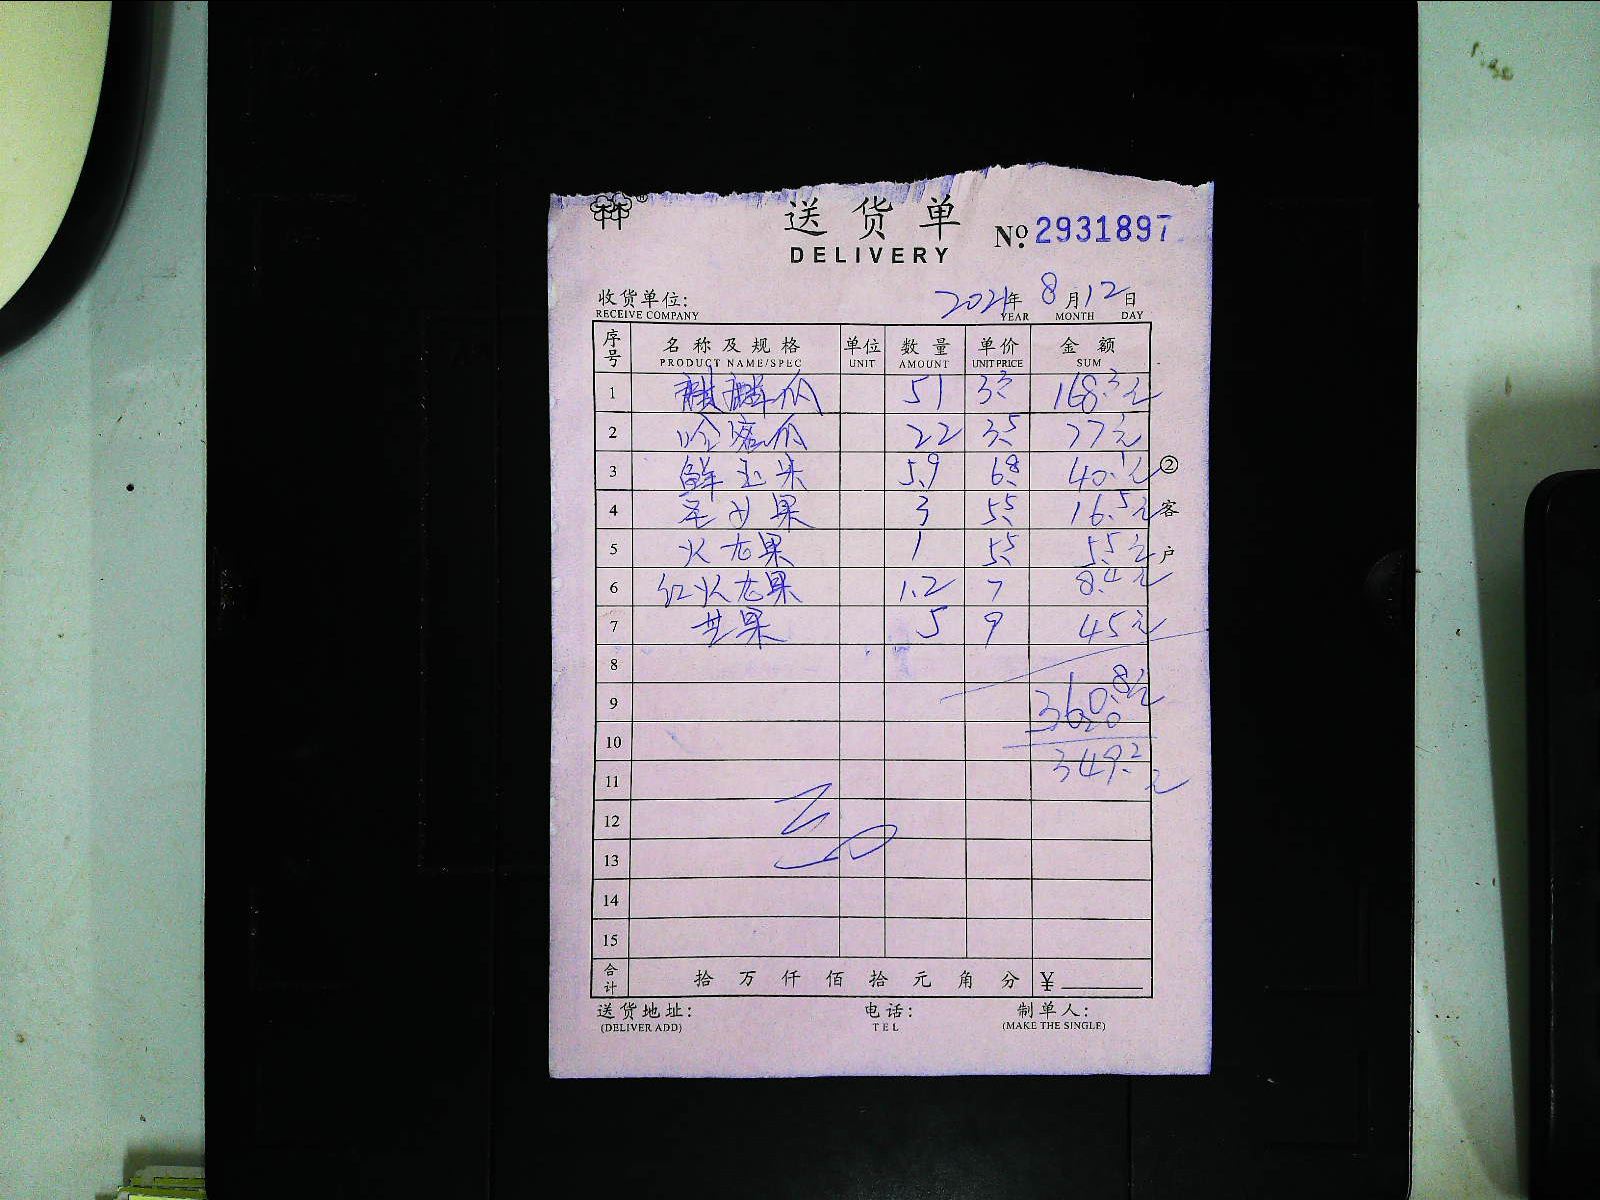 送货单
DELIVERY
No. 2931897
收货单位: 2021年 8月12日
RECEIVE COMPANY YEAR MONTH DAY
序号 名称及规格 单位 数量 单价 金额
PRODUCT NAME/SPEC UNIT AMOUNT UNIT PRICE SUM
1 麒麟瓜 51 3.3 168.3元
2 哈密瓜 22 3.5 77元
3 鲜玉米 5.9 6.8 40.1元
4 圣女果 3 5.5 16.5元
5 火龙果 1 5.5 5.5元
6 红火龙果 1.2 7 8.4元
7 芒果 5 9 45元
8
9 360.8元
10
11 349.2元
12
13
14
15
合计 拾 万 仟 佰 拾 元 角 分 ¥
②客户
送货地址: 电话: 制单人:
(DELIVER ADD) TEL (MAKE THE SINGLE)